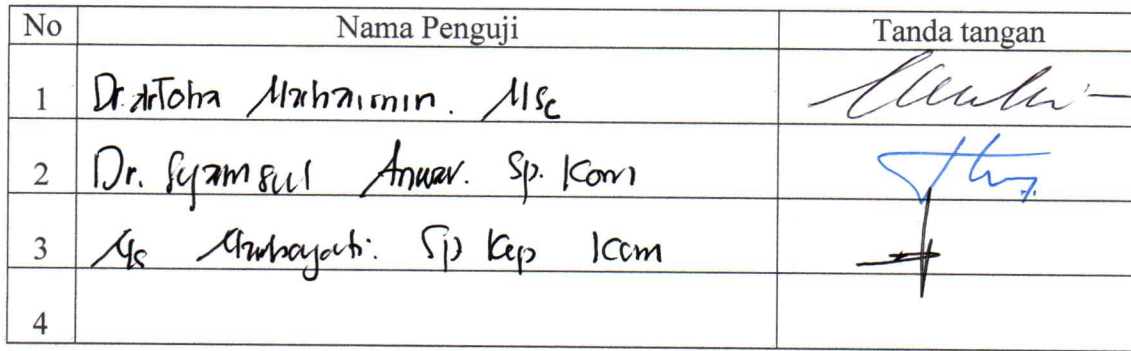 No Nama Penguji Tanda tangan
1 Dr. dr Toha Muhaimin. MSc
2 Dr. Syamsul Anwar. Sp. Kom
3 Ns Nurhayati. Sp Kep Kom
4